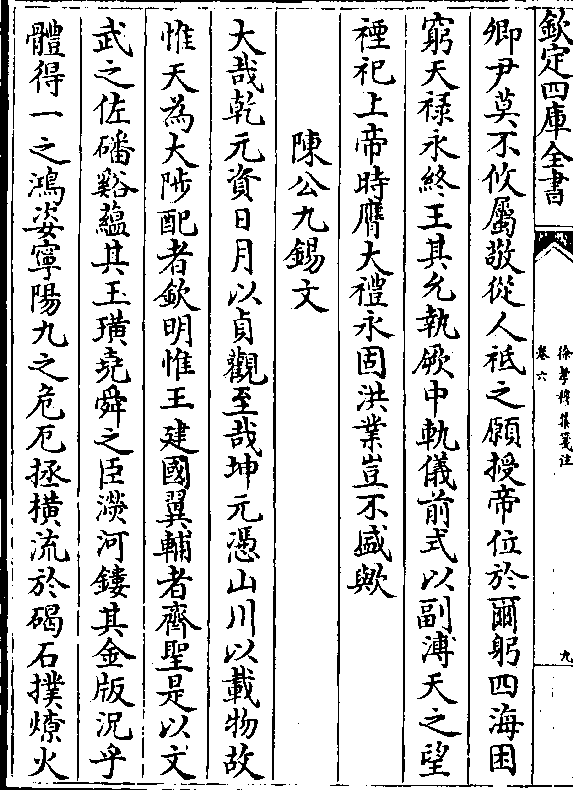 欽定四庫全書
徐孝穆集箋注
卷六
九
卿尹莫不攸屬敬從人祗之願授帝位於爾躬四海困
窮天禄永終王其允執厥中軌儀前式以副溥天之望
禋祀上帝時膺大禮永固洪業豈不盛歟
陳公九錫文
大哉乾元資日月以貞觀至哉坤元憑山川以載物故
惟天為大陟配者欽明惟王建國翼輔者齊聖是以文
武之佐磻谿蘊其玉璜堯舜之臣滎河鏤其金版況乎
體得一之鴻姿寧陽九之危厄拯橫流於碣石撲燎火